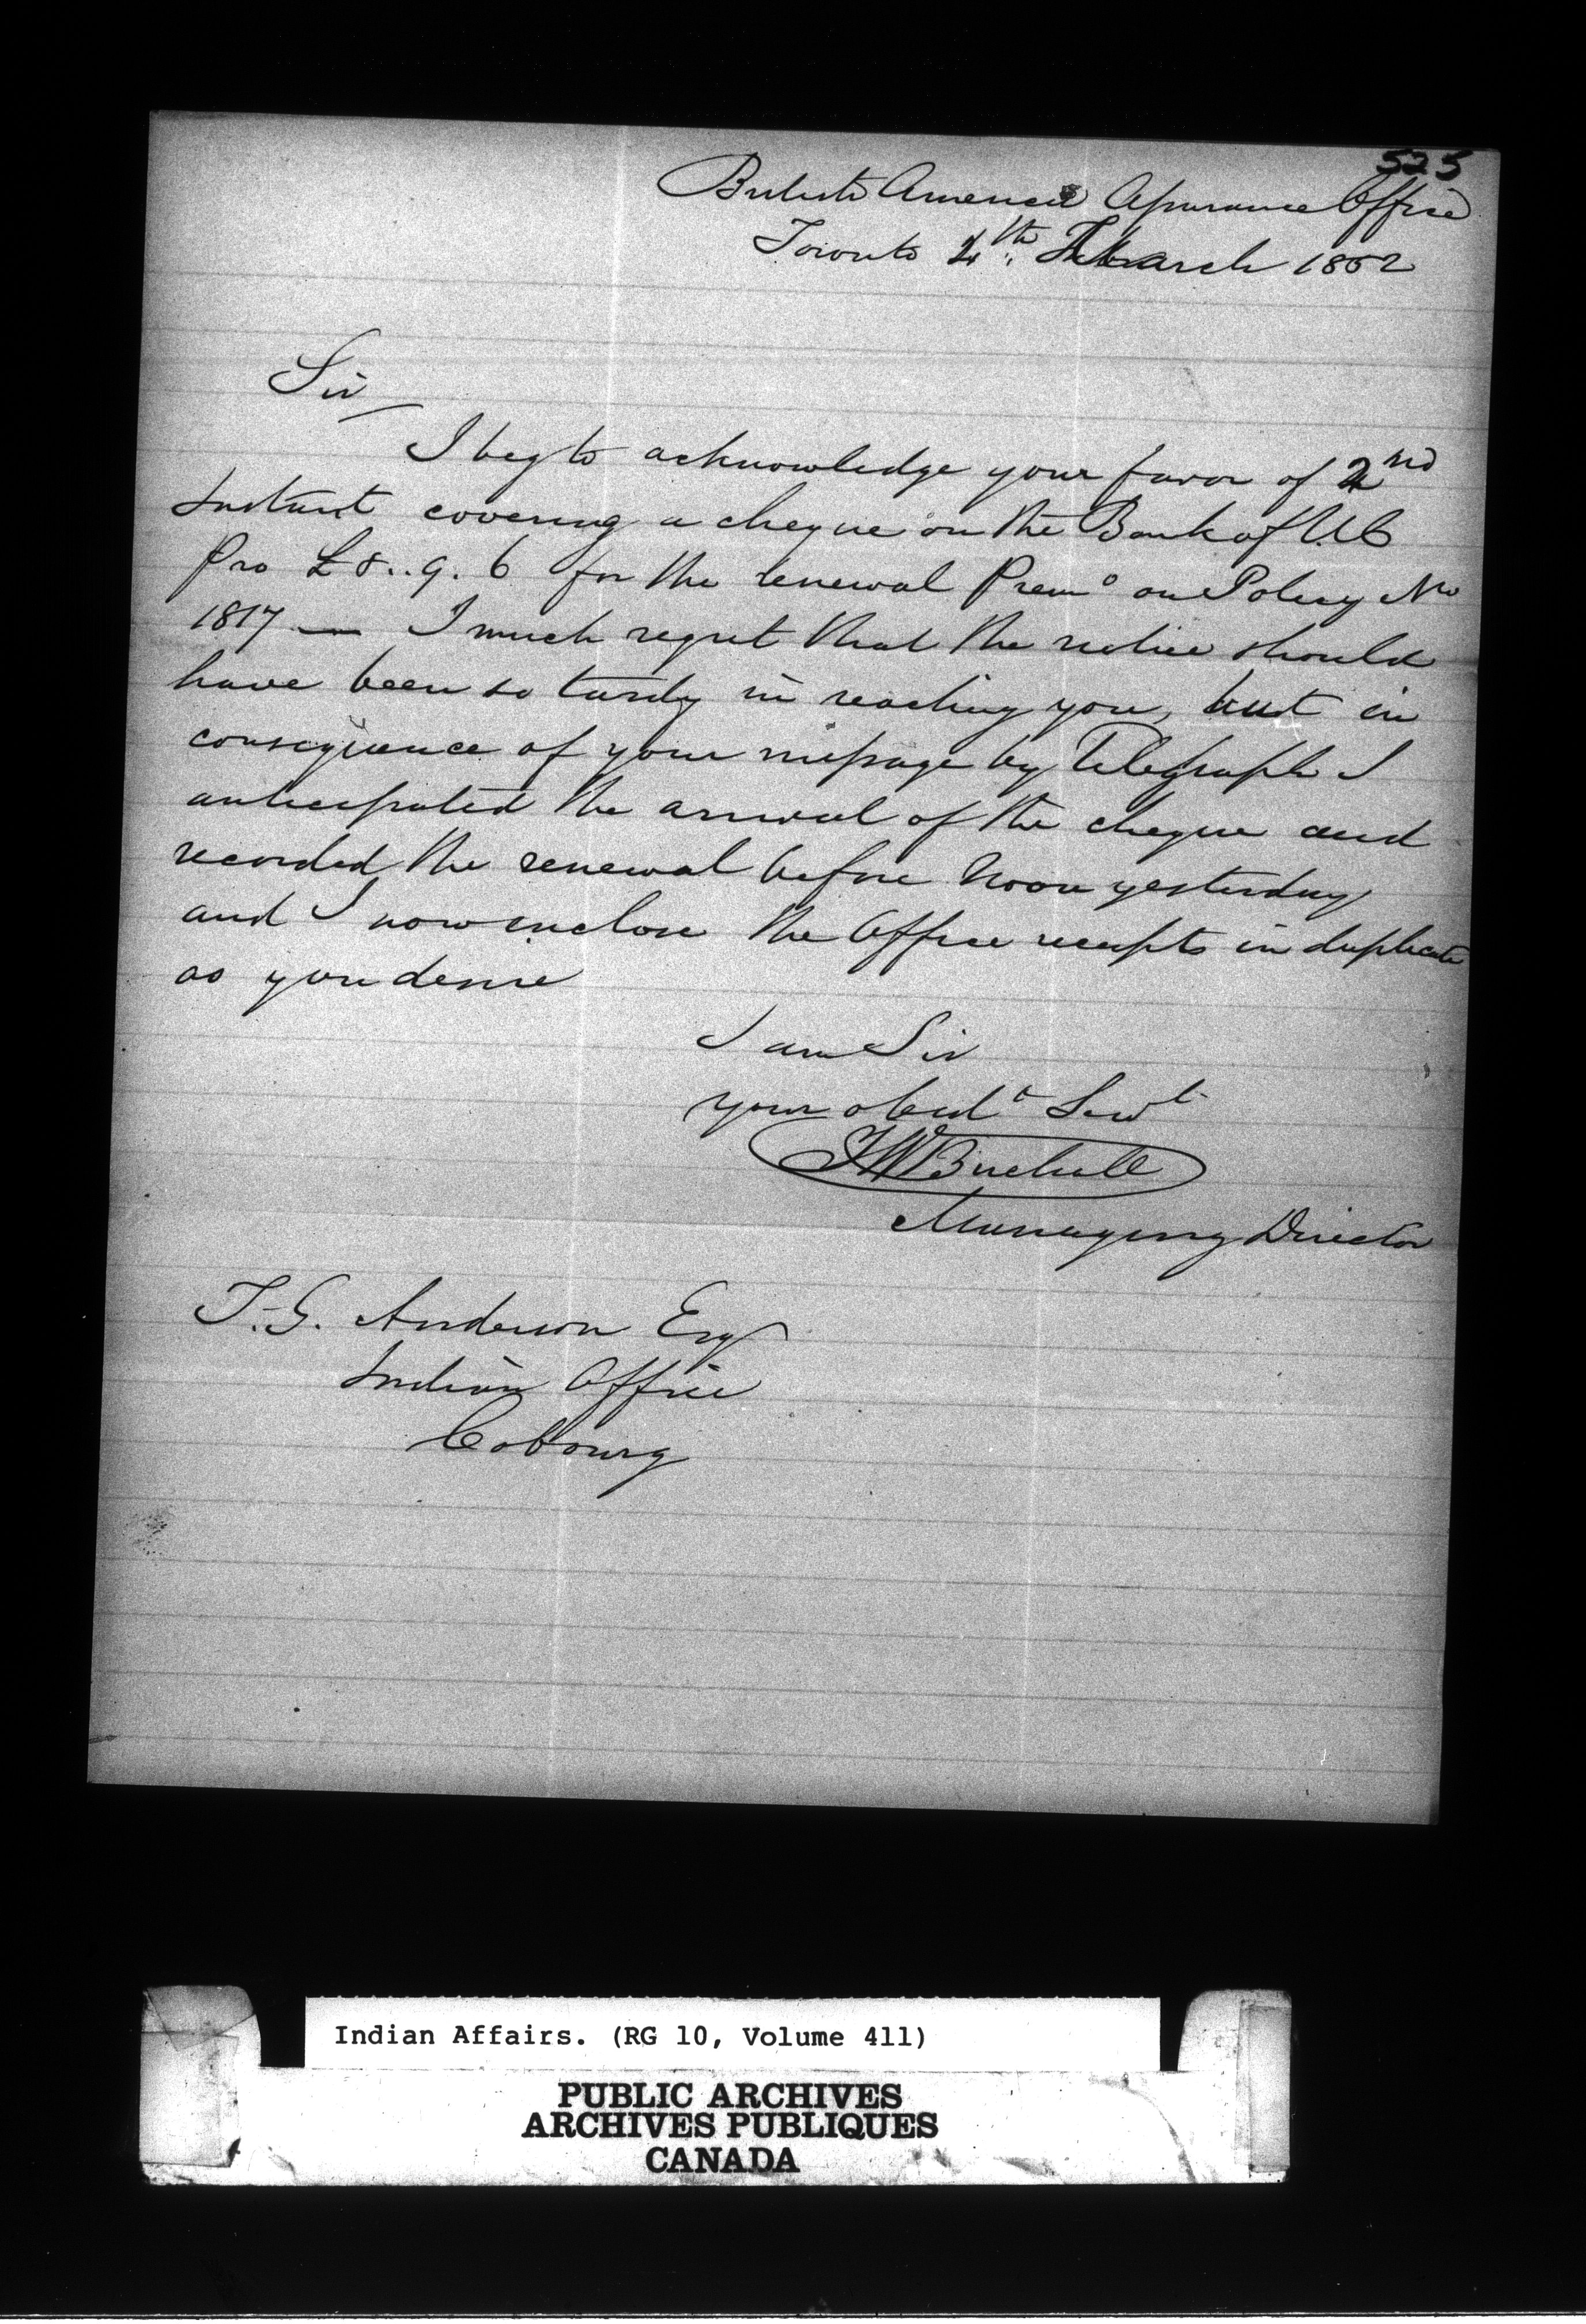 525
British America Assurance Office
Toronto 4th March 1852
Sir
I beg to acknowledge your favor of 2nd
Instant covering a cheque on the Bank of U.C
Pro £8..9.6 for the renewal Premo on Policy No
1817 — I much regret that the notice should
have been so tardy in reaching you, but in
consequence of your message by Telegraph I
anticipated the arrival of the cheque and
recorded the renewal before Noon yesterday
and I now enclose the Office receipts in duplicate
as you desire
I am Sir
your obedt Servt
T W Birchall
Managing Director
T. G. Anderson Esq
Indian Office
Cobourg
Indian Affairs. (RG 10, Volume 411)
PUBLIC ARCHIVES
ARCHIVES PUBLIQUES
CANADA